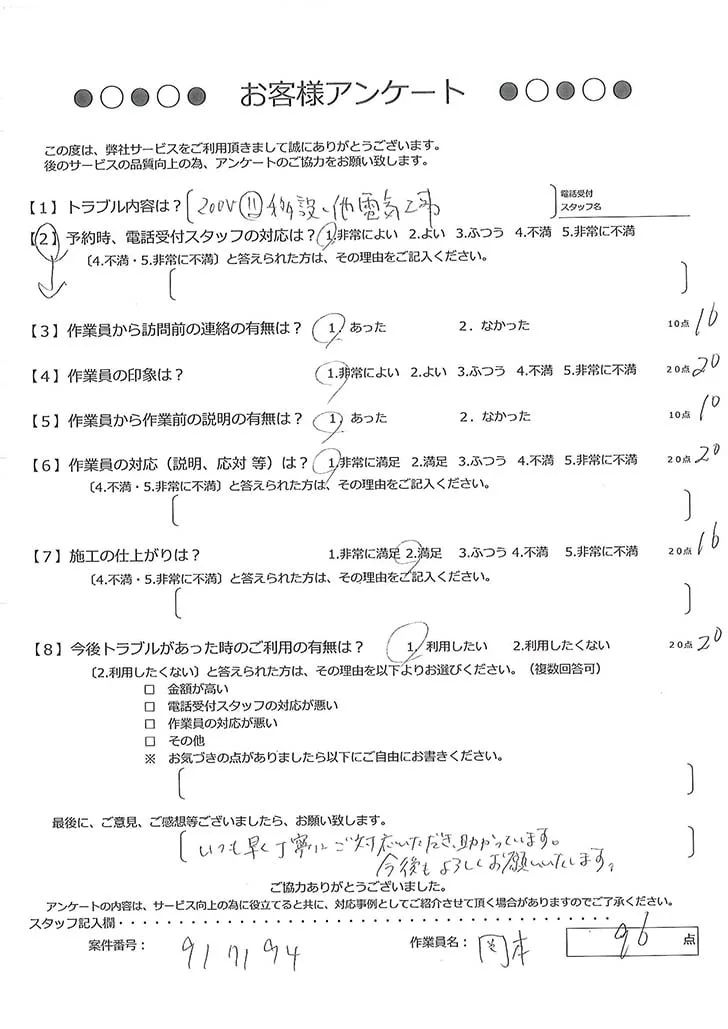 ●○●○● お客様アンケート ●○●○●
この度は、弊社サービスをご利用頂きまして誠にありがとうございます。
後のサービスの品質向上の為、アンケートのご協力をお願い致します。
【1】トラブル内容は？〔200V 移設、他電気工事〕電話受付スタッフ名
【2】予約時、電話受付スタッフの対応は？ 1.非常によい 2.よい 3.ふつう 4.不満 5.非常に不満
〔4.不満・5.非常に不満〕と答えられた方は、その理由をご記入ください。
【3】作業員から訪問前の連絡の有無は？ 1. あった 2. なかった 10点 10
【4】作業員の印象は？ 1.非常によい 2.よい 3.ふつう 4.不満 5.非常に不満 20点 20
【5】作業員から作業前の説明の有無は？ 1. あった 2. なかった 10点 10
【6】作業員の対応（説明、応対 等）は？ 1.非常に満足 2.満足 3.ふつう 4.不満 5.非常に不満 20点 20
〔4.不満・5.非常に不満〕と答えられた方は、その理由をご記入ください。
【7】施工の仕上がりは？ 1.非常に満足 2.満足 3.ふつう 4.不満 5.非常に不満 20点 16
〔4.不満・5.非常に不満〕と答えられた方は、その理由をご記入ください。
【8】今後トラブルがあった時のご利用の有無は？ 1. 利用したい 2.利用したくない 20点 20
〔2.利用したくない〕と答えられた方は、その理由を以下よりお選びください。（複数回答可）
□ 金額が高い
□ 電話受付スタッフの対応が悪い
□ 作業員の対応が悪い
□ その他
※ お気づきの点がありましたら以下にご自由にお書きください。
最後に、ご意見、ご感想等ございましたら、お願い致します。
いつも早く丁寧にご対応いただき、助かっています。
今後もよろしくお願いいたします。
ご協力ありがとうございました。
アンケートの内容は、サービス向上の為に役立てると共に、対応事例としてご紹介させて頂く場合がありますのでご了承ください。
スタッフ記入欄・・・・・・・・・・・・・・・・・・・・・・・・・・・・・・・・・・・・・・・・
案件番号： 917194 作業員名： 岡本 96 点